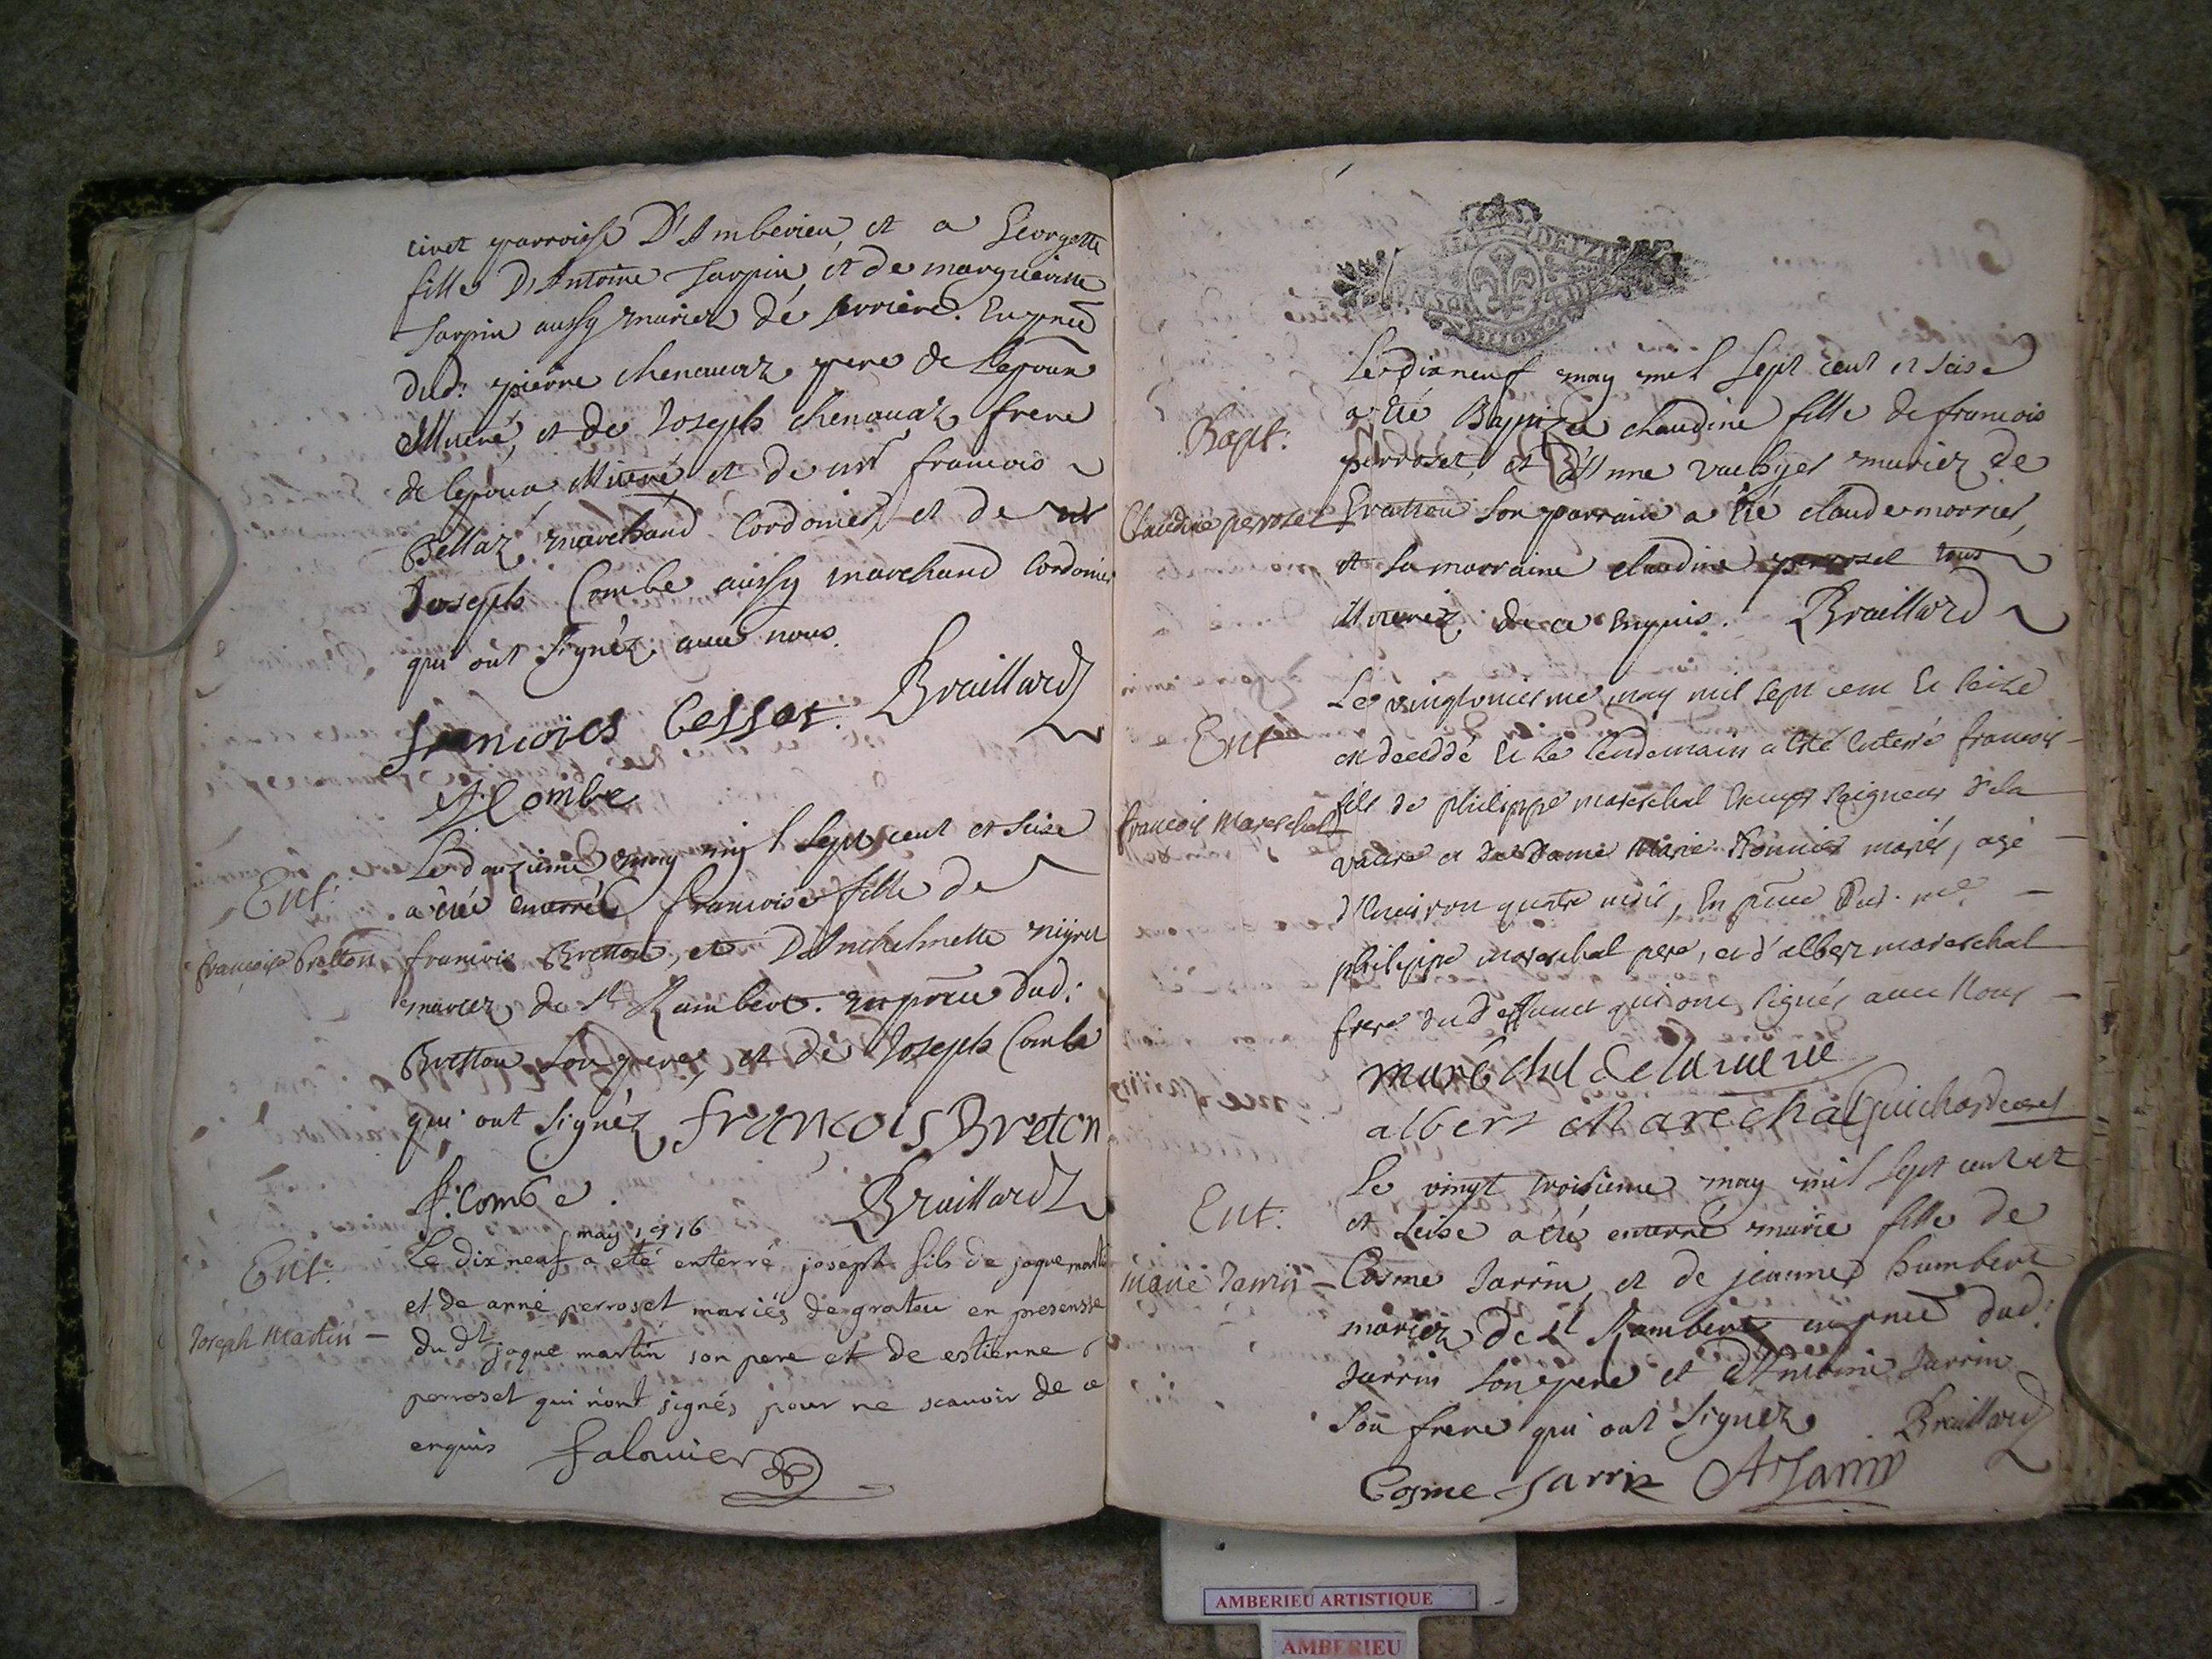 civet parroisse D'Amberieu, et a Georgette
fille D'Antoine Sarpin, et de marguerite
Sarpin aussy mariez de serriere. En pnce
dud: pierre chenavaz pere de l'epoux
et de Joseph chenavaz frere
de l'epoux et de mr francois
Bellaz marchand Cordonier, et de mr
Joseph Combe aussy marchand Cordonier
qui ont signéz avec nous.
francois bessat. Braillard
J Combe
Ent:
Le douzieme may mil sept cent et seise
a été enterrée francoise fille de
francoise bretton
francois Bretton, et D'Anthelmette
mariez de St Rambert. en pnce dud:
Bretton son pere, et de Joseph Combe
qui ont signéz françois Breton
J. Combe. Braillard
may 1716
Ent:
Le dixneuf a eté enterré joseph fils de jaque martin
et de anne perroset mariés de gratou en presensse
Joseph Martin
du dt jaque martin son pere et de estienne
perroset qui n'ont signés pour ne scavoir de ce
enquis falavier
Le dixneuf may mil sept cent et seise
Bapt:
a été Baptizée claudine fille de francois
perroset, et d'Anne mariez de
Claudine perroset
Gratton son parrain a été claude morrier,
et sa marraine claudine perroset tous
de ce enquis. Braillard
Le vingtuniesme may mil sept cent et seize
Ent
est decedé et le lendemain a esté enterré francois
francois Mareschal
fils de philippe mareschal seigneur de la
et de dame marie mariés, agé
d'environ quatre mois, en pnce dud. mre
philippe mareschal pere, et d'albert mareschal
frere du deffunct qui ont signés avec Nous
maréchal de la
albert Marechal Guichard curé
Ent:
Le vingt troisieme may mil sept cent et
et seise a été enterré marie fille de
marie Jarrin
Cosme Jarrin, et de jeanne humbert
mariez de St Rambert en pnce dud:
Jarrin son pere et d'Antoine Jarrin
son frere qui ont signéz Braillard
Cosme Jarrin A Jarrin
AMBERIEU ARTISTIQUE
AMBERIEU